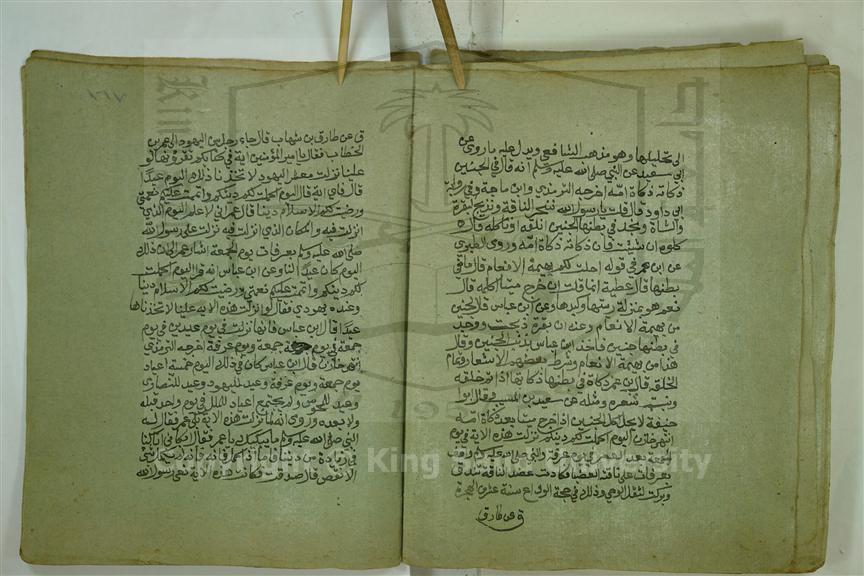 الى تحليلها وهو مذهب الشافعي ويدل عليه ما روي عن
ابى سعيد عن النبي صلى الله عليه وسلم انه قال في الجنين
ذكاته ذكاة امه اخرجه الترمذي وابن ماجة وفي رواية
ابى داود قال قلت يا رسول الله ننحر الناقة ونذبح البقرة
والشاة ونجد في بطنها الجنين انلقه او ناكله قال
كلوه ان شئتم فان ذكاته ذكاة امه وروى الطبري
عن ابن عمر في قوله احلت لكم بهيمة الانعام قال ما في
بطنها قال عطية انما قلت ان خرج ميتا اكله قال
نعم هو بمنزلة ريتها وكبدها وعن ابن عباس قال الجنين
من بهيمة الانعام وعنه ان بقرة ذبحت ووجد
في بطنها جنين فاخذ ابن عباس بذنب الجنين وقال
هذا من بهيمة الانعام وشرط بعضهم الاشعار وتمام
الخلقة قال ابن عمر ذكاة في بطنها ذكاتها اذا تم خلقه
ونبت شعره ومثله عن سعيد بن المسيب قال ابو
حنيفة لا يحل اكل الجنين اذا خرج ميتا بعد ذكاة امه
انتهى خازن اليوم اكملت لكم دينكم نزلت هذه الاية في يوم
الجمعة بعد العصر في يوم عرفة والنبي صلى الله عليه وسلم واقف
بعرفات على ناقته العضبا فكادت عضد الناقة تندق
وبركت لثقل الوحي وذلك في حجة الوداع سنة عشر من الهجرة
ق عن طارق
١٦٧
ق عن طارق بن شهاب قال جاء رجل من اليهود الى عمر بن
الخطاب فقال يا امير المؤمنين اية في كتابكم تقرؤنها لو
علينا نزلت معشر اليهود لاتخذنا ذلك اليوم عيدا
قال فاي اية قال اليوم اكملت لكم دينكم واتممت عليكم نعمتي
ورضيت لكم الاسلام دينا قال عمر اني لاعلم اليوم الذي
انزلت فيه والمكان الذي انزلت فيه نزلت على رسول الله
صلى الله عليه وسلم بعرفات يوم الجمعة اشار عمر الى ان ذلك
اليوم كان عيدا لنا وعن ابن عباس انه قرا اليوم اكملت
لكم دينكم واتممت عليكم نعمتي ورضيت لكم الاسلام دينا
وعنده يهودي فقال لو انزلت هذه الاية علينا لاتخذناها
عيدا قال ابن عباس فانها نزلت في يوم عيدين في يوم
جمعة في يوم جمعة ويوم عرفة اخرجه الترمذي
انتهى خازن قال ابن عباس كان في ذلك اليوم خمسة اعياد
يوم جمعة ويوم عرفة وعيد لليهود وعيد للنصارى
وعيد للمجوس ولم يجتمع اعياد الملل في يوم واحد قبله
ولا بعده وروى انه لما نزلت هذه الاية بكى عمر فقال له
النبي صلى الله عليه وسلم ما يبكيك يا عمر فقال ابكاني انا كنا
في زيادة من ديننا فاما اذا كمل فانه لم يكمل شي
الا نقص قال صدقت فكانت هذه الاية نعي رسول الله
Copyright © King Saud University